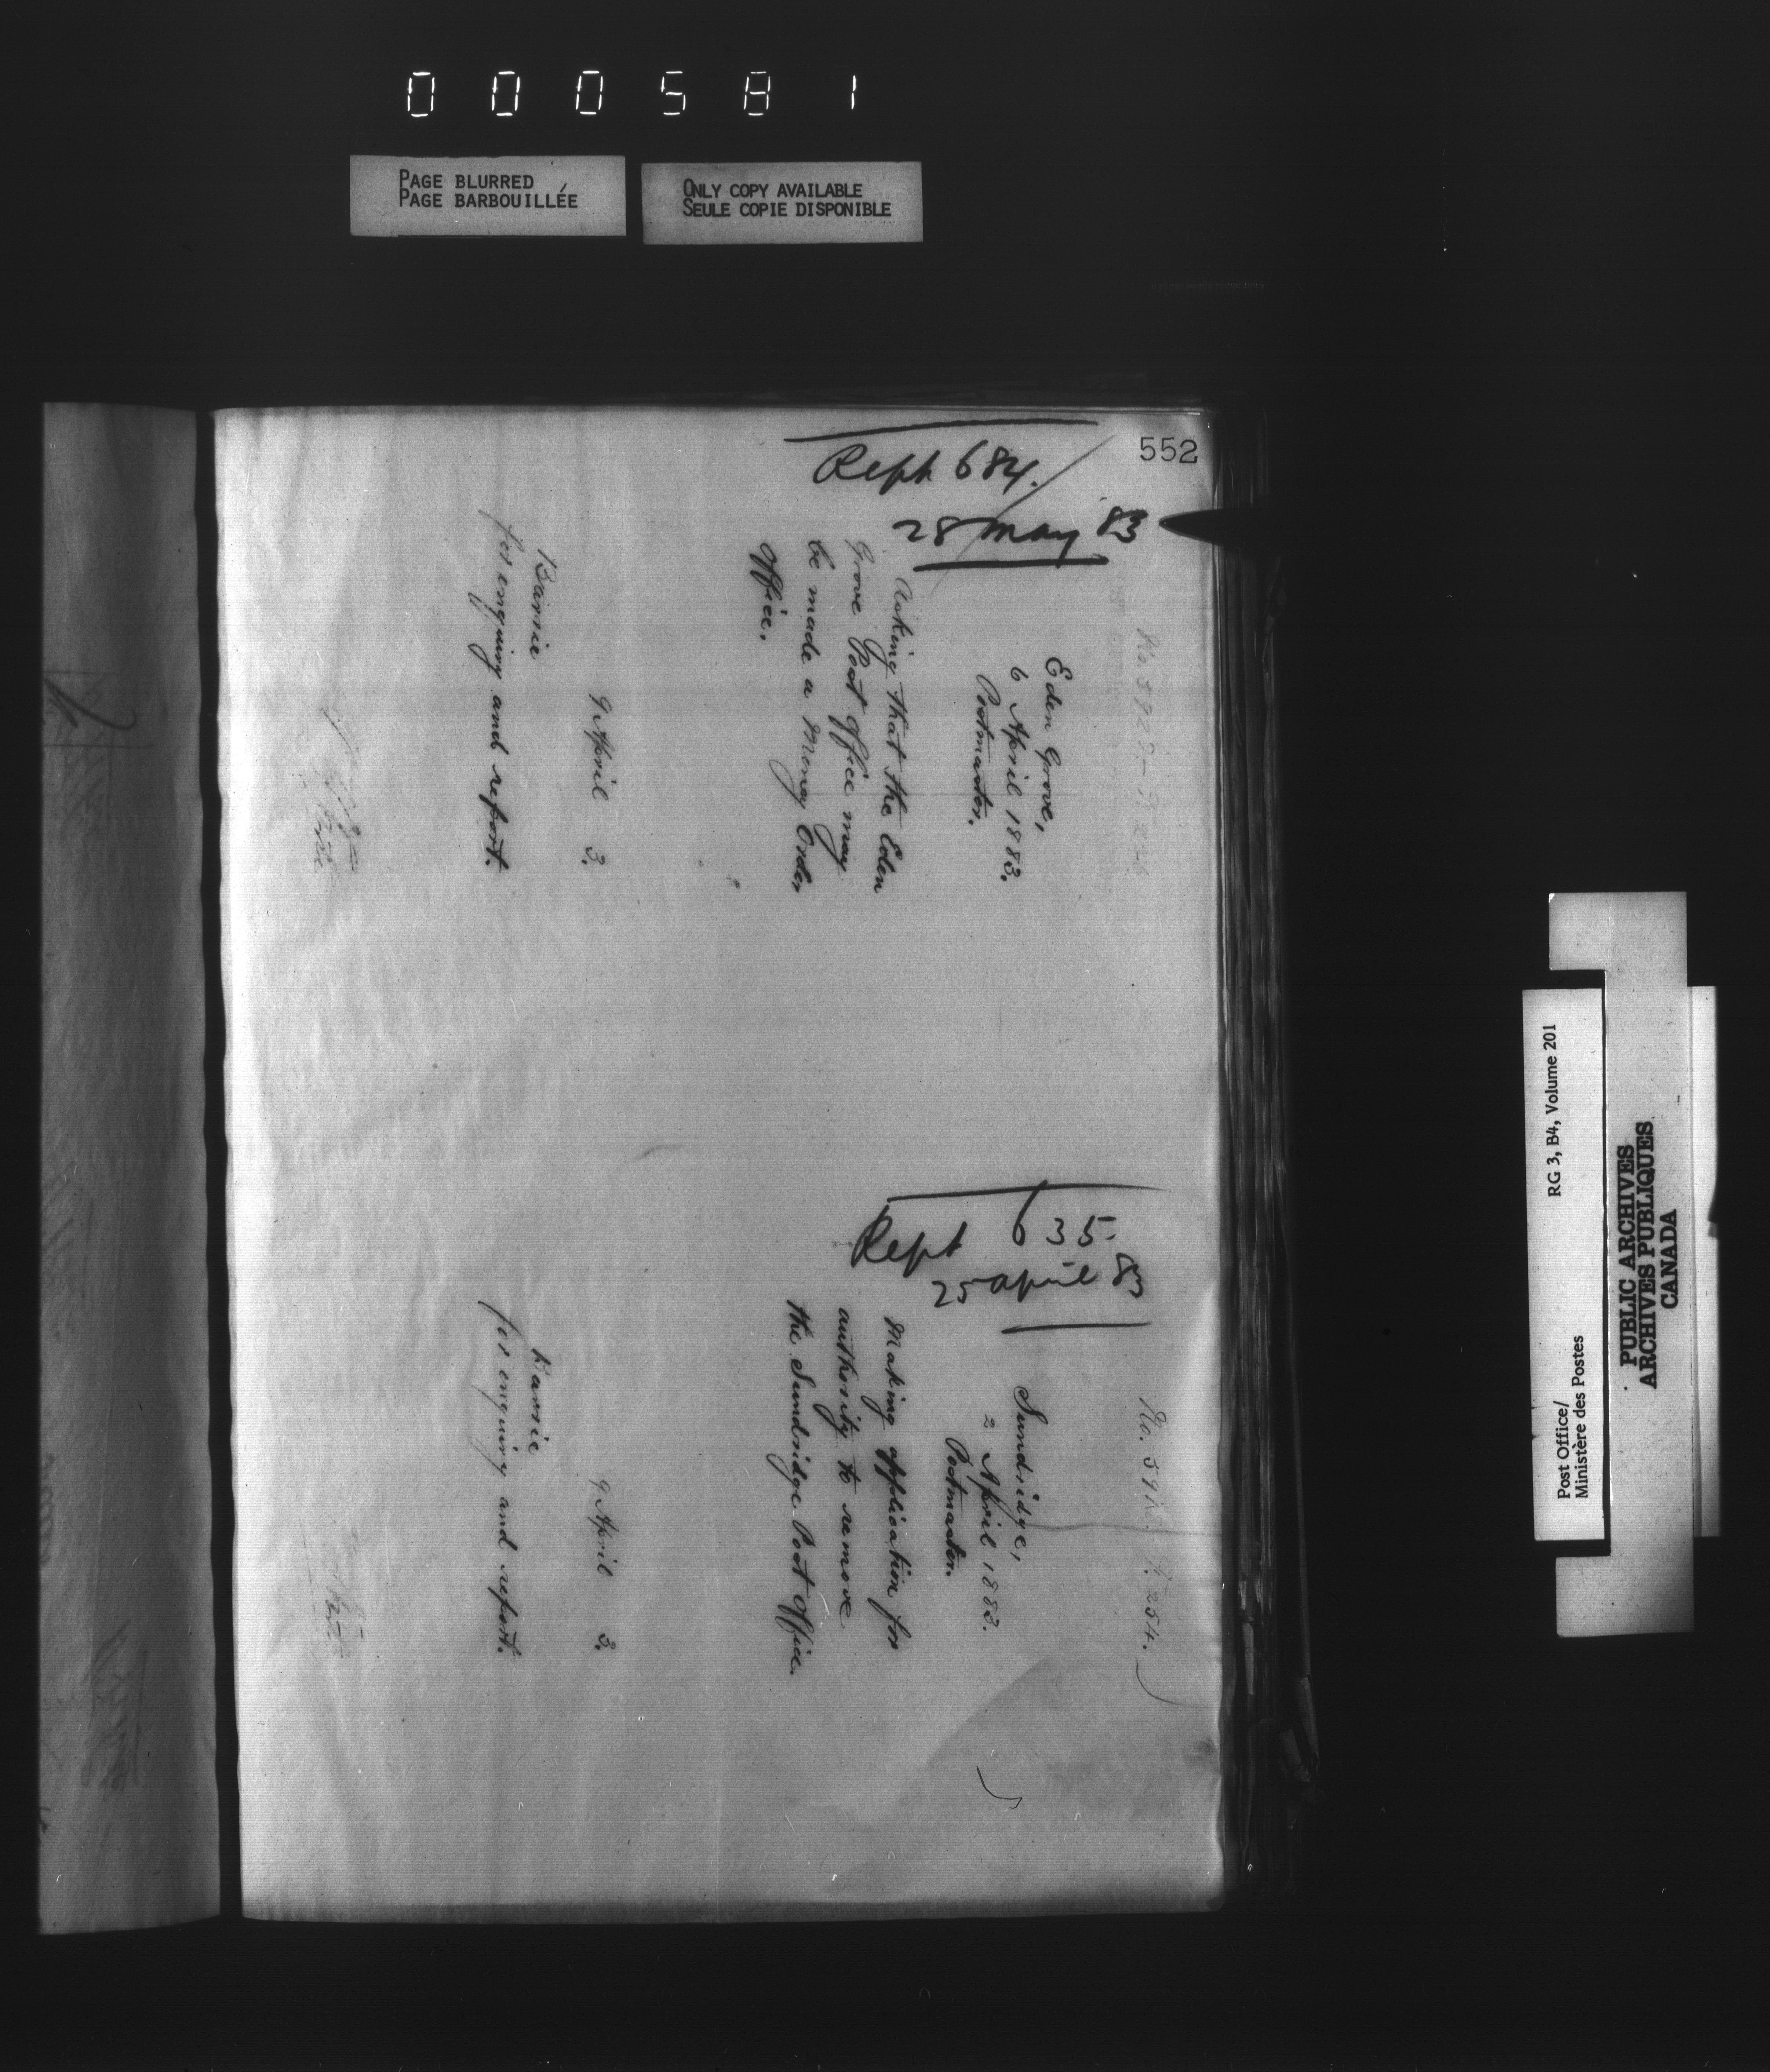 000581
PAGE BLURRED
PAGE BARBOUILLÉE
ONLY COPY AVAILABLE
SEULE COPIE DISPONIBLE
552
Rept 684.
28 May 83
Eden Grove,
6 April 1883.
Postmaster.
Asking that the Eden
Grove Post Office may
be made a Money Order
Office.
9 April 3.
Barrie
for enquiry and report.
Rept 635.
25 April 83
Sundridge,
2 April 1883.
Postmaster.
Making application for
authority to remove
the Sundridge Post Office.
9 April 3.
Barrie
for enquiry and report.
RG 3, B4, Volume 201
Post Office/
Ministère des Postes
PUBLIC ARCHIVES
ARCHIVES PUBLIQUES
CANADA